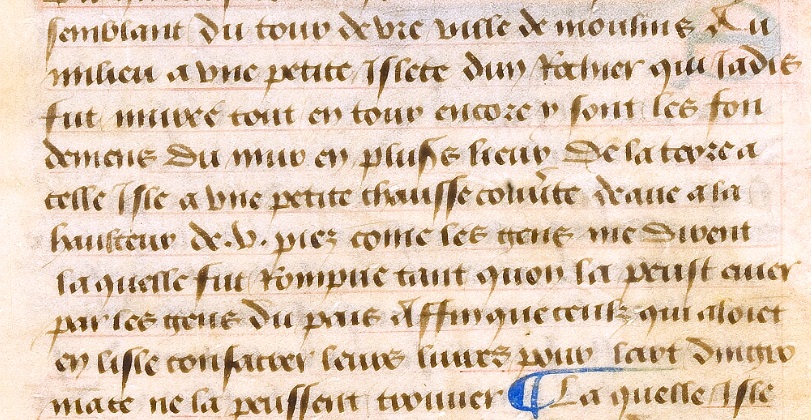 semblant du tour de vre ville de moulins Au
milieu a vne petite Islete dun Rochier qui Jadis
fut mure tout en tour encore y sont les fon
demens du mur en plus's lieux De la terre a
celle Isle a vne petite chaussee couute deaue a la
haulteur de .v. piez come les gens me dirent
la quelle fut Rompue tant quon la peust caver
par les gens du pais Affin que ceulx qui aloiet
en lisle consacrer leurs livres pour lart dnigro
mace ne la peussent trouver ¶ La quelle Isle